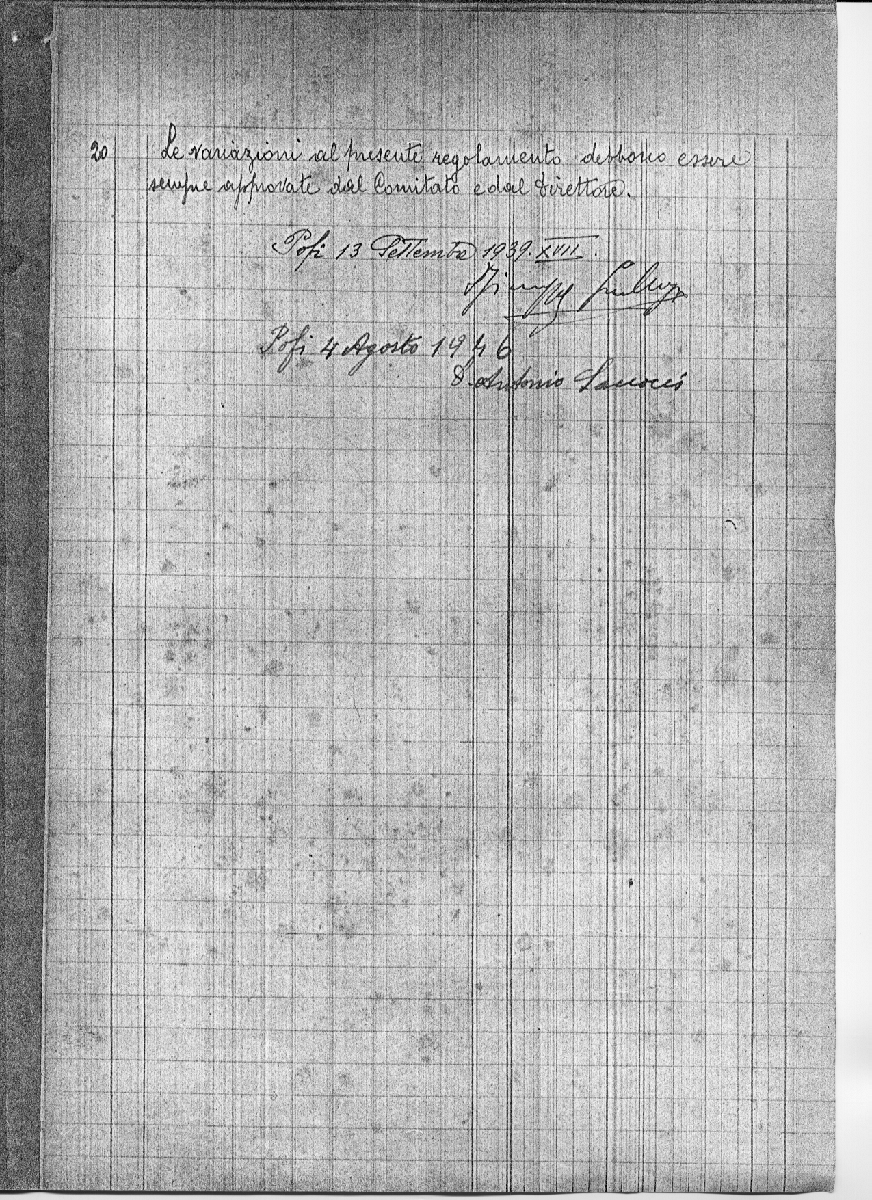 20 Le variazioni al presente regolamento debbono essere
sempre approvate dal Comitato e dal Direttore.
Pofi 13 Settembre 1939. XVII.
Pofi 4 Agosto 1946
D. Antonio